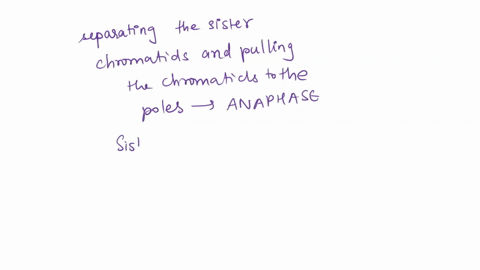 separating the sister
chromatids and pulling
the chromatids to the
poles → ANAPHASE
Sis